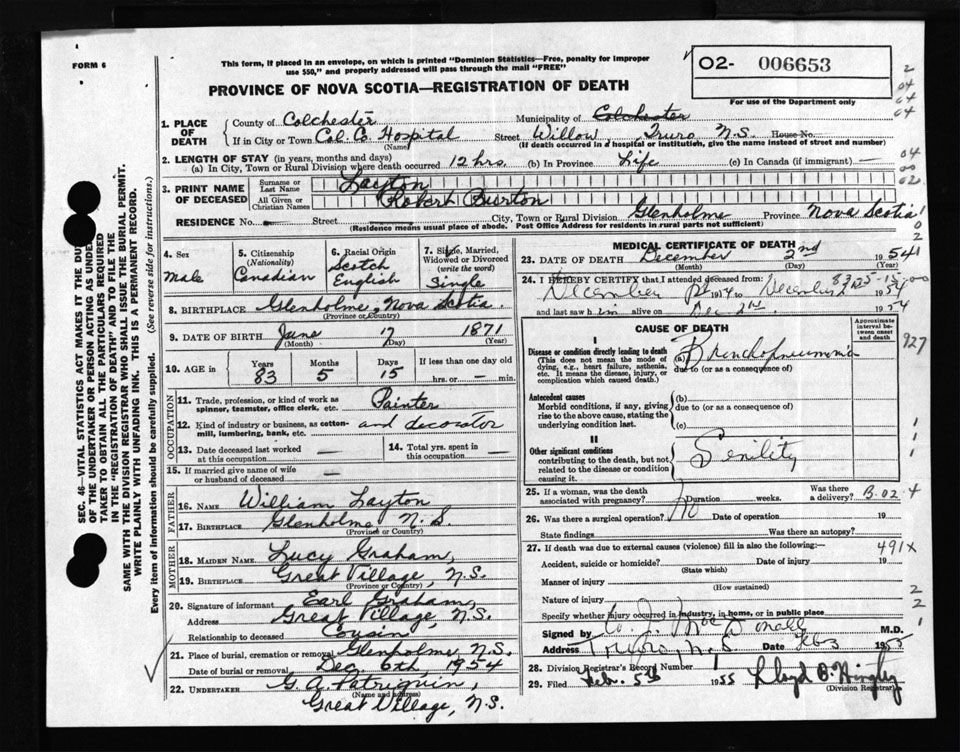 FORM 6
This form, if placed in an envelope, on which is printed "Dominion Statistics—Free, penalty for improper
use $50," and properly addressed will pass through the mail "FREE"
02- 006653
For use of the Department only
PROVINCE OF NOVA SCOTIA—REGISTRATION OF DEATH
1. PLACE OF DEATH
County of Colchester Municipality of Colchester
If in City or Town Col. Co. Hospital Street Willow, Truro N.S. House No.
(Name) (If death occurred in a hospital or institution, give the name instead of street and number)
2. LENGTH OF STAY (in years, months and days)
(a) In City, Town or Rural Division where death occurred 12 hrs. (b) In Province Life (c) In Canada (if immigrant) —
3. PRINT NAME OF DECEASED
Surname or Last Name Layton
All Given or Christian Names Robert Burton
RESIDENCE No. — Street — City, Town or Rural Division Glenholme Province Nova Scotia
(Residence means usual place of abode. Post Office Address for residents in rural parts not sufficient)
4. Sex
Male
5. Citizenship
(Nationality)
Canadian
6. Racial Origin
Scotch
English
7. Single, Married,
Widowed or Divorced
(write the word)
Single
8. BIRTHPLACE Glenholme, Nova Scotia.
(Province or Country)
9. DATE OF BIRTH June 17 1871
(Month) (Day) (Year)
10. AGE in
Years Months Days If less than one day old
83 5 15 hrs. or — min.
OCCUPATION
11. Trade, profession, or kind of work as
spinner, teamster, office clerk, etc. Painter
12. Kind of industry or business, as cotton-
mill, lumbering, bank, etc. and decorator
13. Date deceased last worked
at this occupation —
14. Total yrs. spent in
this occupation —
15. If married give name of wife
or husband of deceased —
FATHER
16. NAME William Layton
17. BIRTHPLACE Glenholme N.S.
(Province or Country)
MOTHER
18. MAIDEN NAME Lucy Graham,
19. BIRTHPLACE Great Village, N.S.
(Province or Country)
20. Signature of informant Earl Graham,
Address Great Village, N.S.
Relationship to deceased Cousin
21. Place of burial, cremation or removal Glenholme, N.S.
Date of burial or removal Dec. 6th, 1954
22. UNDERTAKER G. A. Patriquin,
(Name and address)
Great Village, N.S.
MEDICAL CERTIFICATE OF DEATH
23. DATE OF DEATH December 2nd 1954
(Month) (Day) (Year)
24. I HEREBY CERTIFY that I attended deceased from:
December 1st 1954 to December 2nd 1954
and last saw him alive on Dec 2nd 1954
CAUSE OF DEATH
Approximate
interval between
onset
and death
I
Disease or condition directly leading to death
(This does not mean the mode of
dying, e.g., heart failure, asthenia,
etc. It means the disease, injury, or
complication which caused death.)
(a) Bronchopneumonia
due to (or as a consequence of)
927
Antecedent causes
Morbid conditions, if any, giving
rise to the above cause, stating the
underlying condition last.
(b)
due to (or as a consequence of)
(c)
II
Other significant conditions
contributing to the death, but not
related to the disease or condition
causing it.
Senility
25. If a woman, was the death
associated with pregnancy? No Duration weeks. Was there
a delivery? B-02-4
26. Was there a surgical operation? Date of operation 19
State findings Was there an autopsy?
27. If death was due to external causes (violence) fill in also the following:— 491X
Accident, suicide or homicide? Date of injury 19
(State which)
Manner of injury
(How sustained)
Nature of injury
Specify whether injury occurred in industry, in home, or in public place
Signed by M.D.
Address Truro, N.S Date 1955
28. Division Registrar's Record Number 1
29. Filed Feb. 5th 1955 Lloyd B. Hingley
(Division Registrar)
SEC. 46—VITAL STATISTICS ACT MAKES IT THE DU
OF THE UNDERTAKER OR PERSON ACTING AS UNDE
TAKER TO OBTAIN ALL THE PARTICULARS REQUIRED
IN THE "REGISTRATION OF DEATH" AND TO FILE THE
SAME WITH THE DIVISION REGISTRAR WHO SHALL ISSUE THE BURIAL PERMIT.
WRITE PLAINLY WITH UNFADING INK. THIS IS A PERMANENT RECORD.
Every item of information should be carefully supplied. (See reverse side for instructions.)